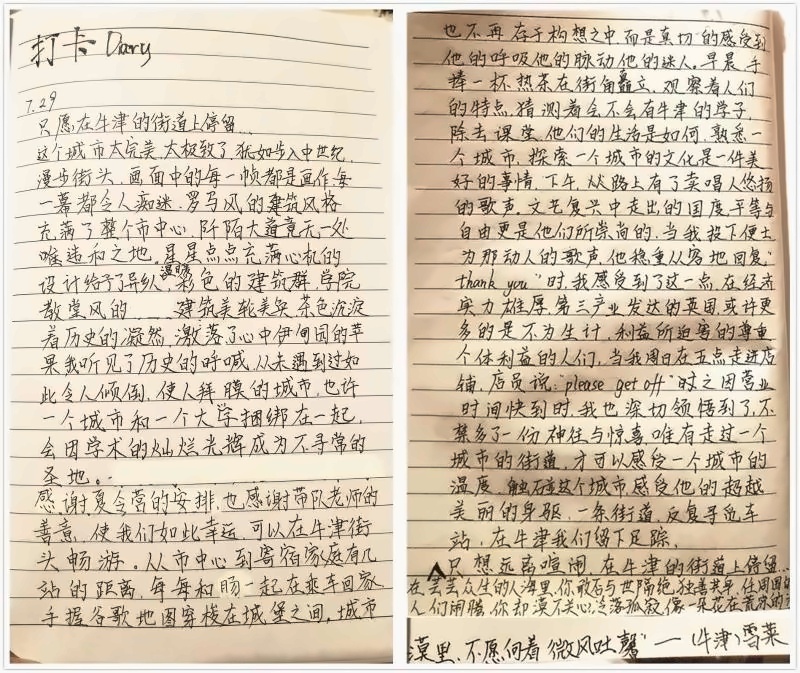 打卡 Diary
7.29
只愿在牛津的街道上停留...
这个城市太完美太极致了,犹如步入中世纪,
漫步街头,画面中的每一帧都是画作,每
一幕都令人痴迷.罗马风的建筑风格
充满了整个市中心,阡陌大道竟无一处
唯造和之地,星星点点充满心机的
设计给予了异乡温暖彩色的建筑群.学院
教堂风的 建筑美轮美奂.茶色沉淀
着历史的凝然,激落了心中伊甸园的苹
果我听见了历史的呼喊,从未遇到过如
此令人倾倒,使人拜膜的城市,也许
一个城市和一个大学捆绑在一起,
会因学术的灿烂光辉成为不寻常的
圣地。
感谢夏令营的安排,也感谢带队老师的
善意,使我们如此幸运,可以在牛津街
头畅游.从市中心到寄宿家庭有几
站的距离,每每和肠一起在乘车回家
手握谷歌地图穿梭在城堡之间,城市
也不再存于构想之中,而是真切的感受到
他的呼吸他的脉动他的迷人.早晨手
捧一杯热茶在街角矗立,观察着人们
的特点,猜测着会不会有牛津的学子,
除去课堂,他们的生活是如何,熟悉一
个城市,探索一个城市的文化是一件美
好的事情.下午,从路上有了卖唱人悠扬
的歌声.文艺复兴中走出的国度,平等与
自由更是他们所崇尚的,当我投下便士
为那动人的歌声,他稳重从容地回复"
thank you"时,我感受到了这一点,在经济
实力雄厚,第三产业发达的英国,或许更
多的是不为生计,利益所迫害的尊重
个体利益的人们,当我周日在五点走进店
铺,店员说:"please get off"时之因营业
时间快到时,我也深切领悟到了,不
禁多了一份神往与惊喜,唯有走过一个
城市的街道,才可以感受一个城市的
温度,触碰这个城市感受他的超越
美丽的身躯,一条街道,反复寻觅车
站,在牛津我们留下足踪,
只想远离喧闹,在牛津的街道上停留...
在芸芸众生的人海里,你敢否与世隔绝,独善其身,任周围的
人们闹腾,你却漠不关心,冷落孤寂,像一朵花在荒凉的沙
漠里,不愿向着微风吐馨"——(牛津)雪莱